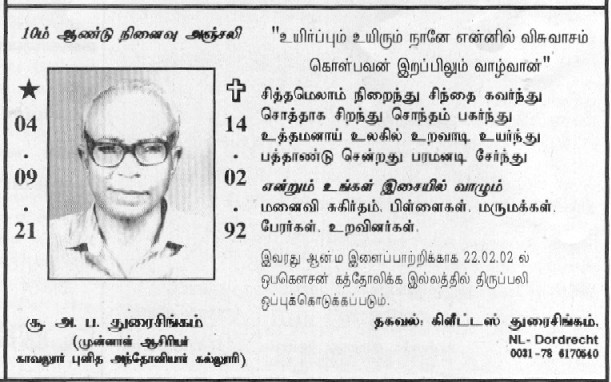 10ம் ஆண்டு நினைவு அஞ்சலி
★
04
.
09
.
21
✝
14
.
02
.
92
சூ. அ. ப. துரைசிங்கம்
(முன்னாள் ஆசிரியர்
காவலூர் புனித அந்தோனியார் கல்லூரி)
"உயிர்ப்பும் உயிரும் நானே என்னில் விசுவாசம்
கொள்பவன் இறப்பிலும் வாழ்வான்"
சித்தமெலாம் நிறைந்து சிந்தை கவர்ந்து
சொத்தாக சிறந்து சொந்தம் பகர்ந்து
உத்தமனாய் உலகில் உறவாடி உயர்ந்து
பத்தாண்டு சென்றது பரமனடி சேர்ந்து
என்றும் உங்கள் இசையில் வாழும்
மனைவி சுகிர்தம், பிள்ளைகள், மருமக்கள்,
பேரர்கள், உறவினர்கள்.
இவரது ஆன்ம இளைப்பாற்றிக்காக 22.02.02 ல்
ஒபகௌசன் கத்தோலிக்க இல்லத்தில் திருப்பலி
ஒப்புக்கொடுக்கப்படும்.
தகவல்: கிளீட்டஸ் துரைசிங்கம்,
NL- Dordrecht
0031-78 6170540